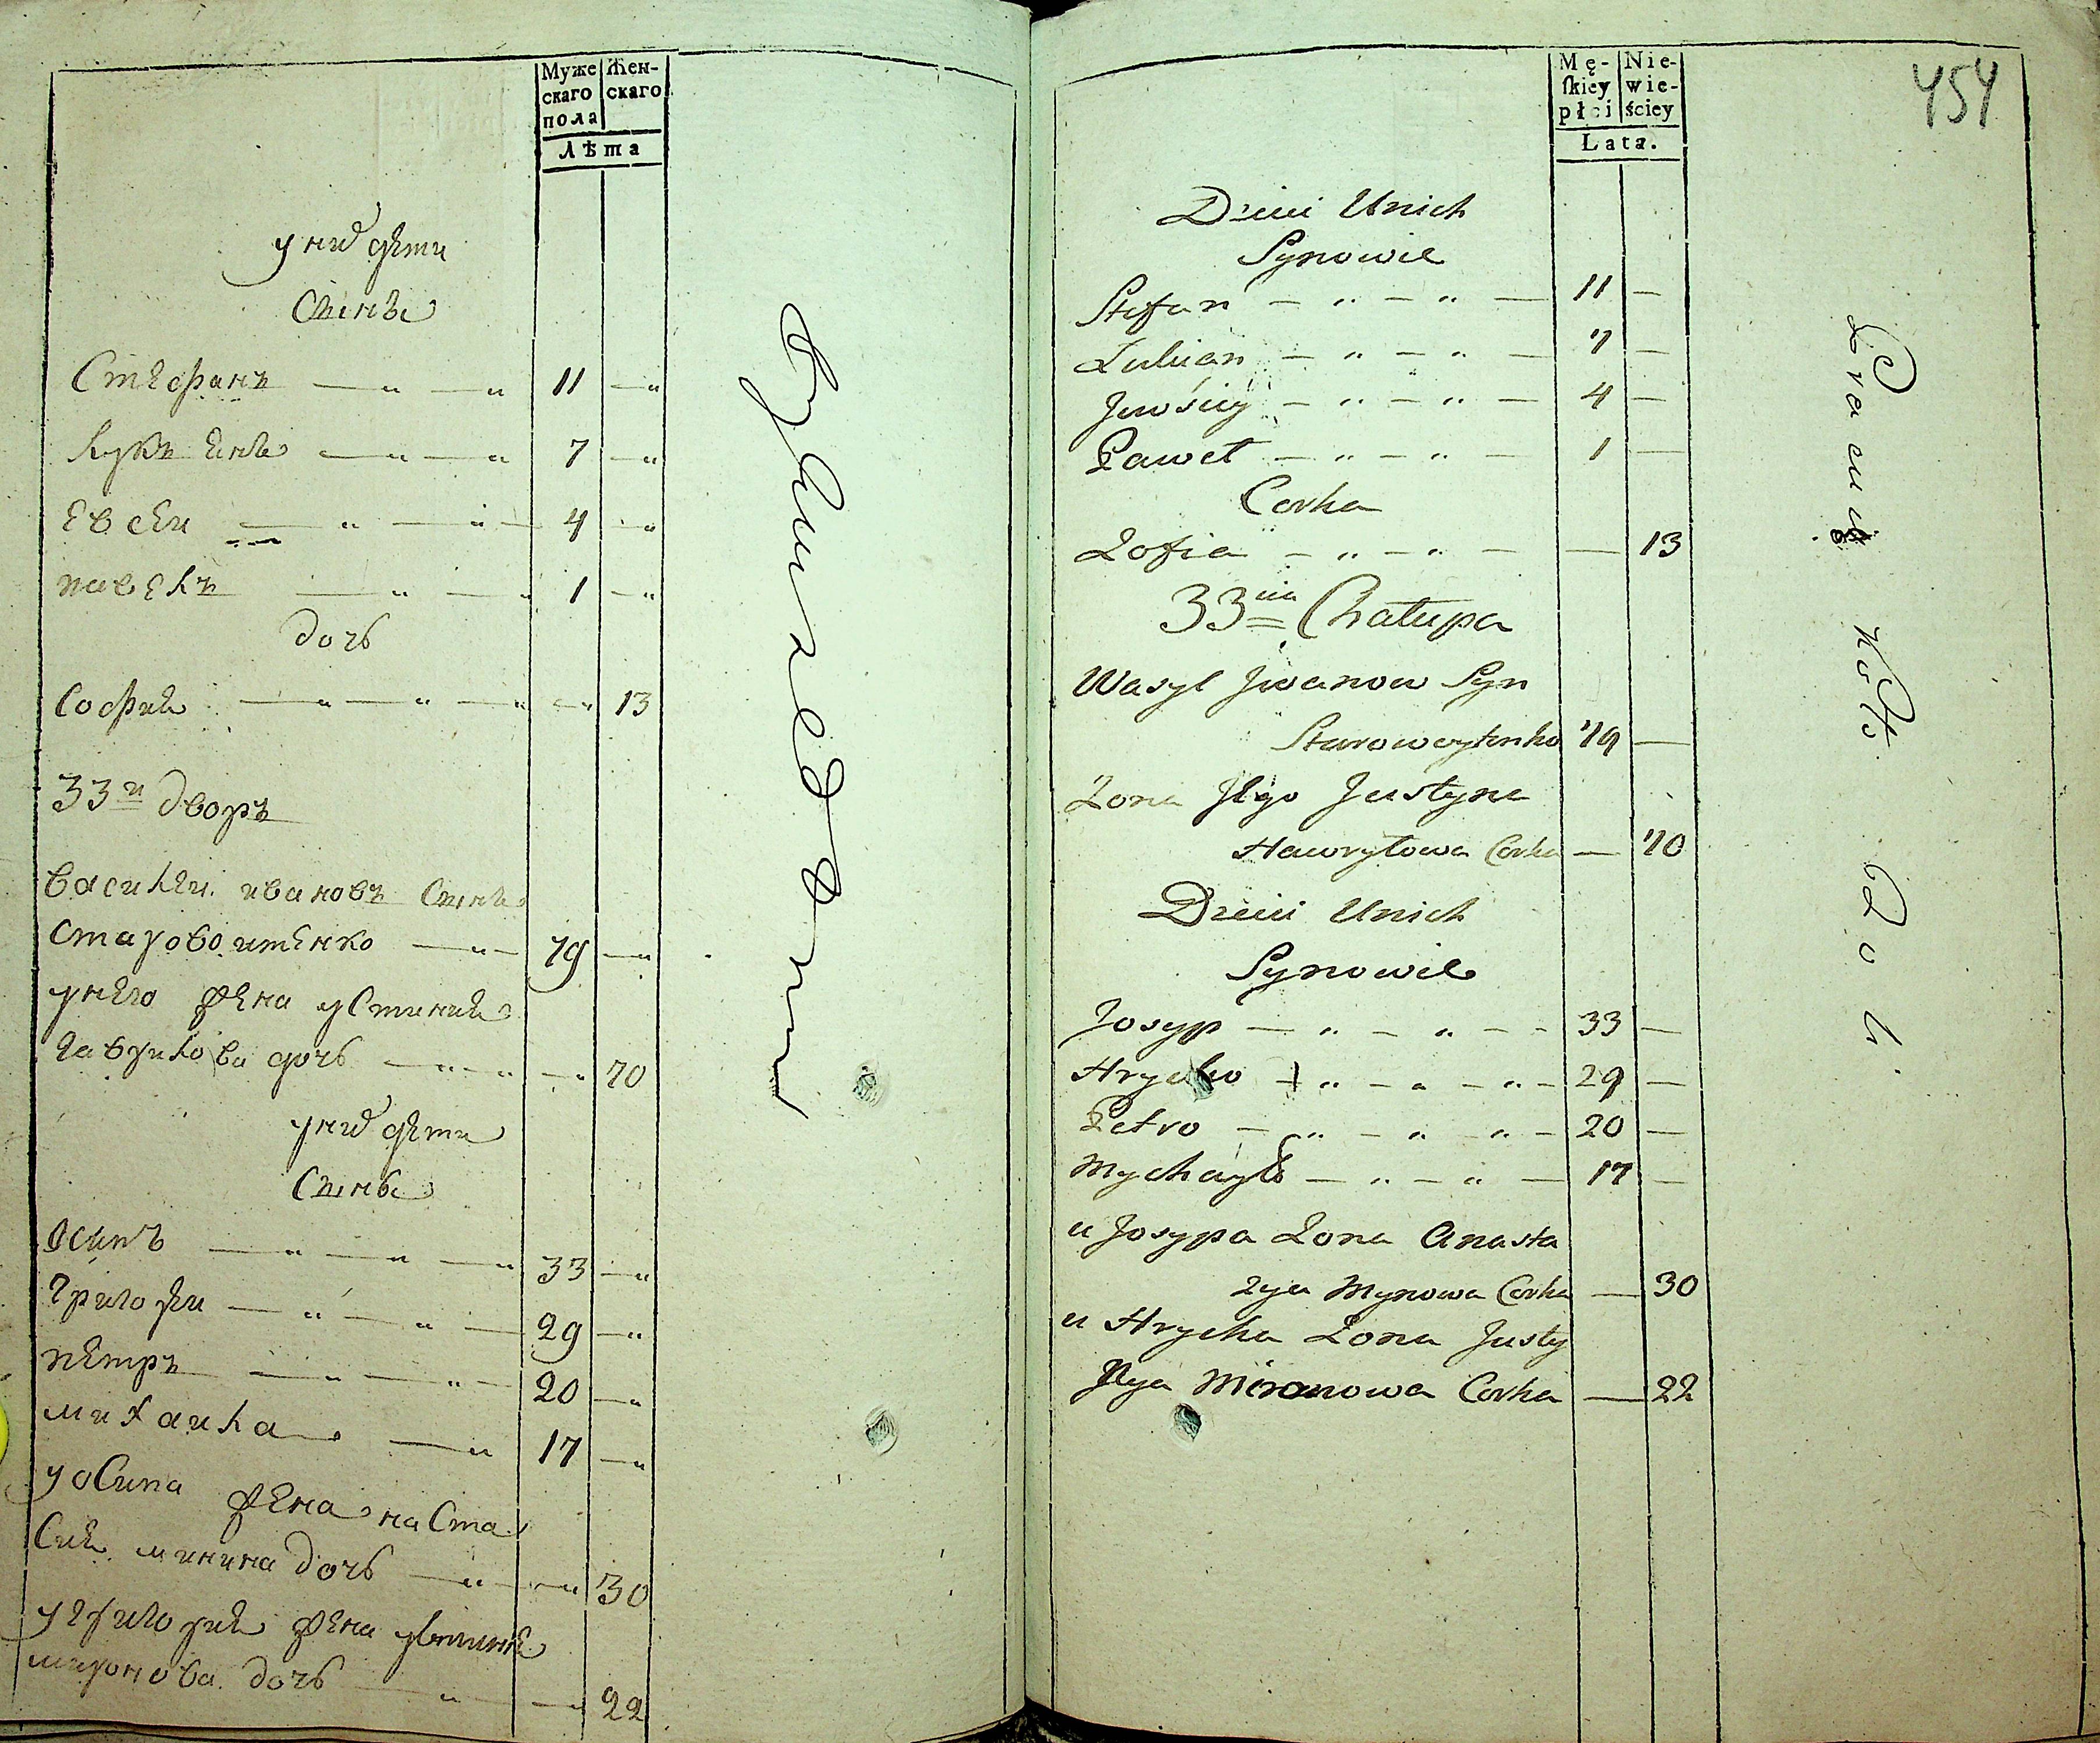 Муже
скаго
пола
Жен-
скаго
Лѣта
у них дети
Сыны
Стефанъ — „ — „ 11 — „
Лукъянъ — „ — „ 7 — „
Евсей — „ — „ — 4 — „
павелъ — „ — „ 1 — „
дочь
София — „ — „ — „ — „ 13
33й дворъ
василей ивановъ Сынъ
старовоитенко — „ — 79 — „
у него жена устиния
гаврилова дочь — „ — „ — „ 70
у них дети
Сыны
осипъ — „ — „ — „ 33 — „
григорей — „ — „ — 29 — „
петръ — „ — „ — 20 — „
михаила — „ 17 — „
у осипа жена наста
сия минина дочь — „ — „ 30
у григория жена устиния
миронова дочь — „ — „ 22
454
Mę-
skiey
płci
Nie-
wie-
ściey
Lata.
Dzieci Unich
Synowie
Stefan — „ — „ — 11 —
Lukian — „ — „ — 7 —
Jewśiey — „ — „ — 4 —
Paweł — „ — „ — 1 —
Corka
Zofia — „ — „ — — 13
33cia Chałupa
Wasyl Jwanow Syn
Starowoytenko 79 —
Zona Jego Justyna
Hawryłowa Corka — 70
Dzieci Unich
Synowie
Josyp — „ — „ — - 33 —
Hrycko + „ — „ — „ — 29 —
Petro — „ — „ „ — 20 —
Mychayło — „ — „ — 17 —
u Josypa Zona Anasta
zya Mynowa Corka — 30
u Hrycka Zona Justy
nya Mironowa Corka — 22